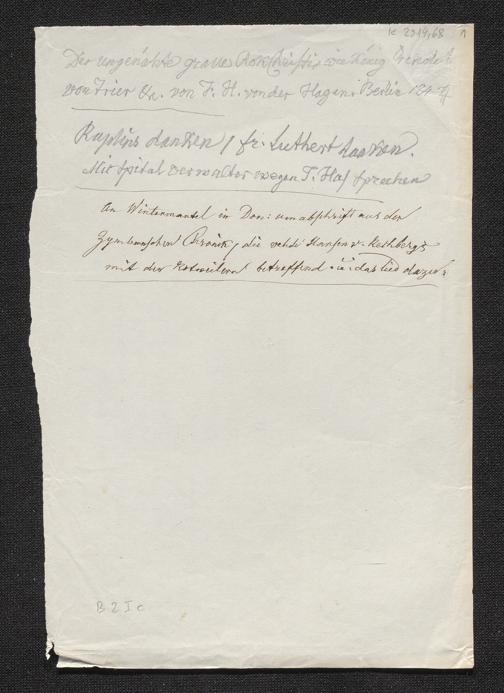 k 2019,68 1
Der ungenähte graue Rock Christi wie König Orendel
von Trier &c. von F. H. von der Hagen. Berlin 184
danken / fr. Luthert danken.
Mit Spital verwalter wegen T. Haf sprechen
An Wintermantel in Don: um abschrift aus der
Zymbernschen Kronik, die vehde Hansen v. Rechbergs
mit den Rotweilern betreffend u: das lied dazu.
B 2 I c